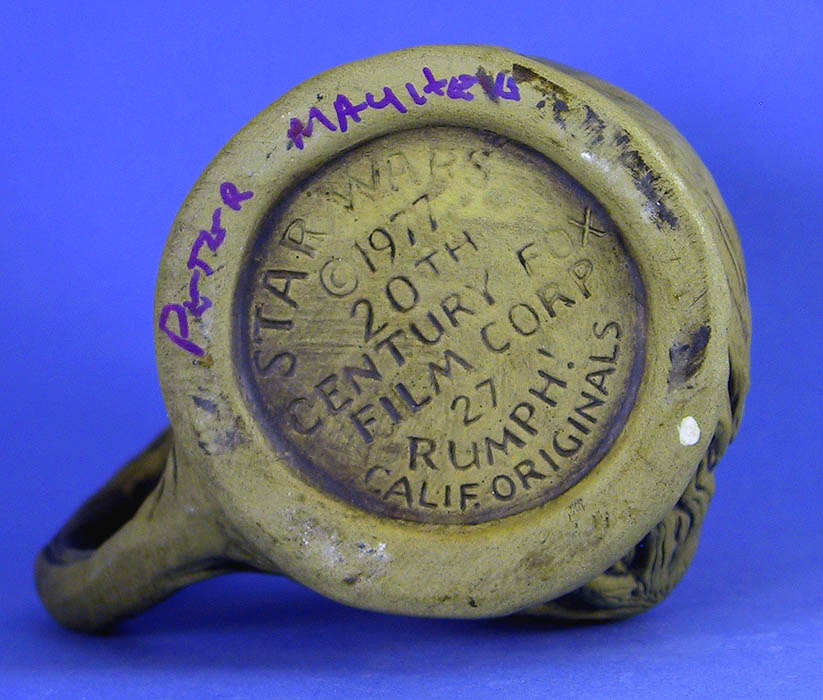 PETER MAYHEW
STAR WARS
©1977
20TH
CENTURY FOX
FILM CORP
27
RUMPH!
CALIF. ORIGINALS